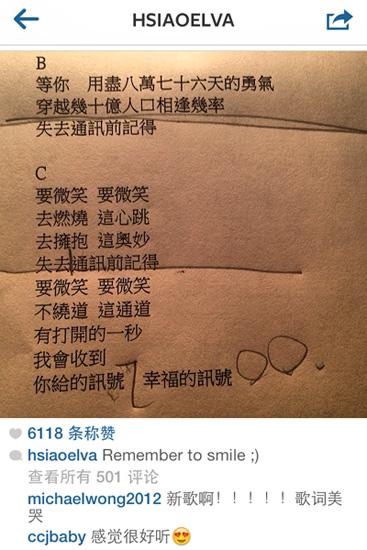 HSIAOELVA
B
等你 用盡八萬七十六天的勇氣
穿越幾十億人口相逢幾率
失去通訊前記得
C
要微笑 要微笑
去燃燒 這心跳
去擁抱 這奧妙
失去通訊前記得
要微笑 要微笑
不繞道 這通道
有打開的一秒
我會收到
你給的訊號 幸福的訊號
6118 条称赞
hsiaoelva Remember to smile ;)
查看所有 501 评论
michaelwong2012 新歌啊！！！！！歌词美
哭
ccjbaby 感觉很好听😍